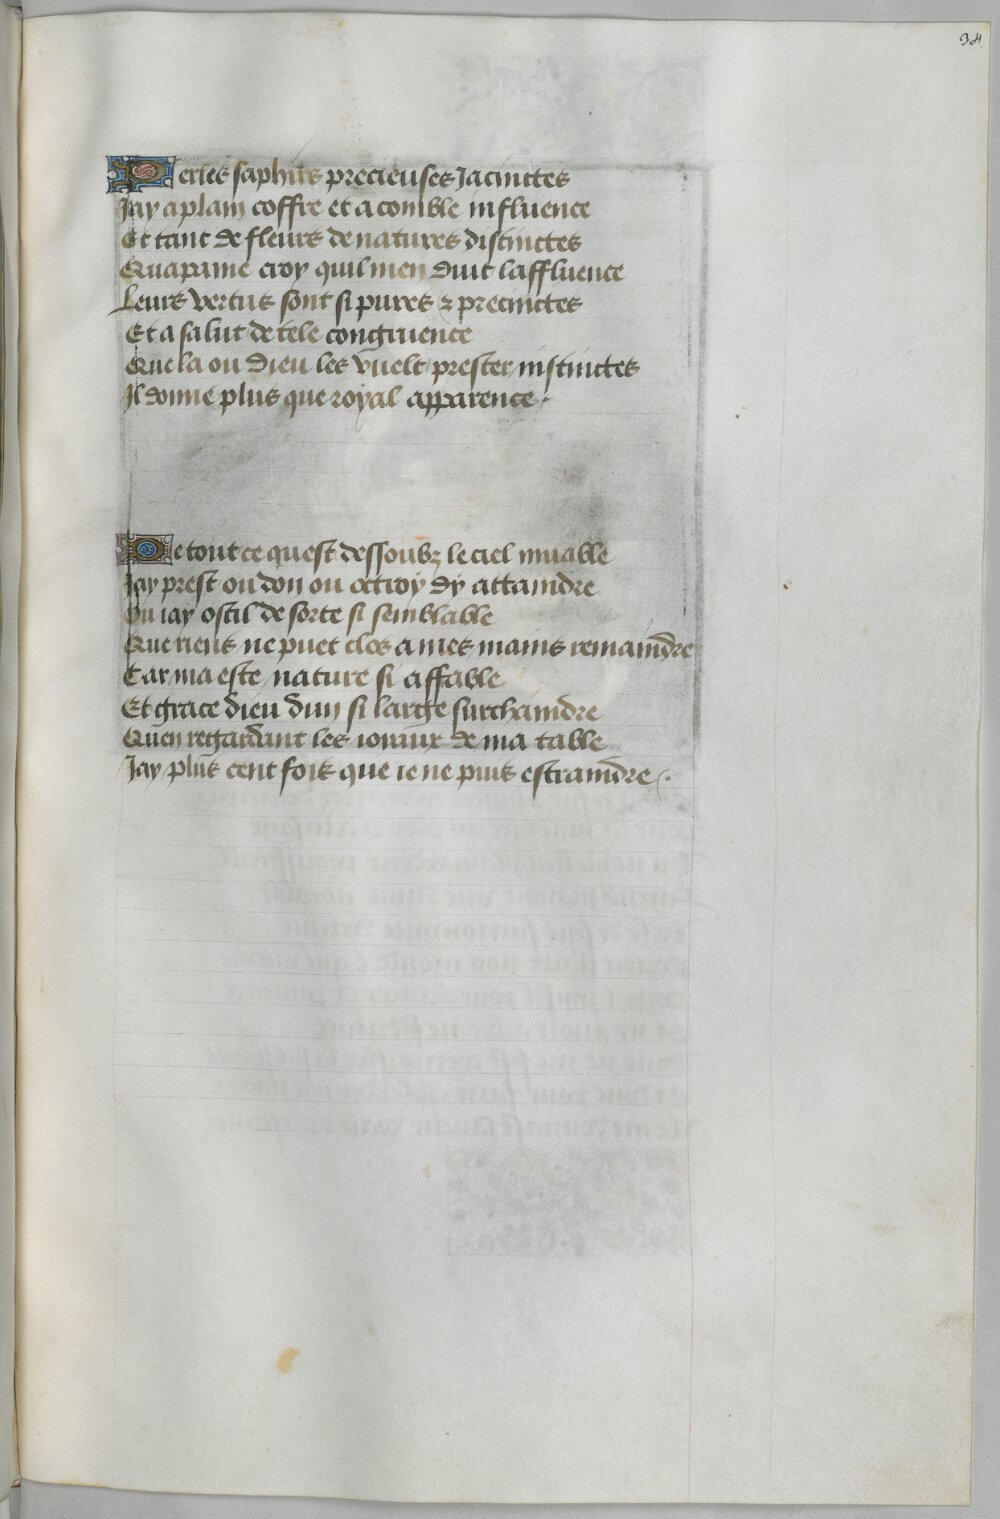 34
Perles saphirs precieuses Jacinctes
Jay a plain coffre et a comble influence
Et tant de fleurs de natures distinctes
Qua paine croy quil men duit laffluence
Leurs vertus sont si pures & precinctes
Et a salut de tele congruence
Que la ou dieu les vuelt prester instinctes
Il donne plus que royal apparence
De tout ce quest dessoubz le ciel muable
Jay prest ou don ou octroy dy attaindre
Ou iay ostil de sorte si semblable
Que riens ne puet clos a mes mains remaindre
Car ma este nature si affable
Et grace dieu dun si large surchaindre
Quen regardant les ioiaux de ma table
Jay plus cent fois que ie ne puis estraindre